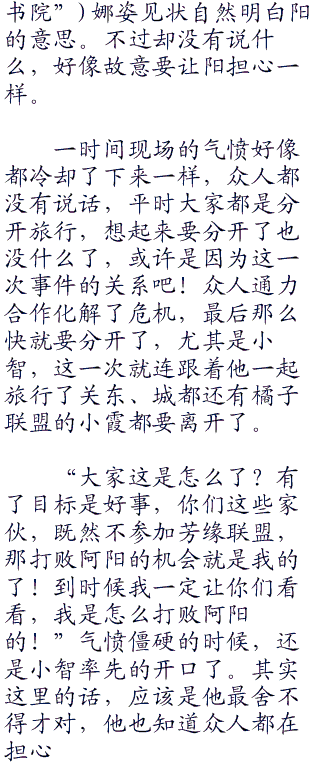 书院”)娜姿见状自然明白阳
的意思。不过却没有说什
么，好像故意要让阳担心一
样。
一时间现场的气愤好像
都冷却了下来一样，众人都
没有说话，平时大家都是分
开旅行，想起来要分开了也
没什么了，或许是因为这一
次事件的关系吧！众人通力
合作化解了危机，最后那么
快就要分开了，尤其是小
智，这一次就连跟着他一起
旅行了关东、城都还有橘子
联盟的小霞都要离开了。
“大家这是怎么了？有
了目标是好事，你们这些家
伙，既然不参加芳缘联盟，
那打败阿阳的机会就是我的
了！到时候我一定让你们看
看，我是怎么打败阿阳
的！”气愤僵硬的时候，还
是小智率先的开口了。其实
这里的话，应该是他最舍不
得才对，他也知道众人都在
担心